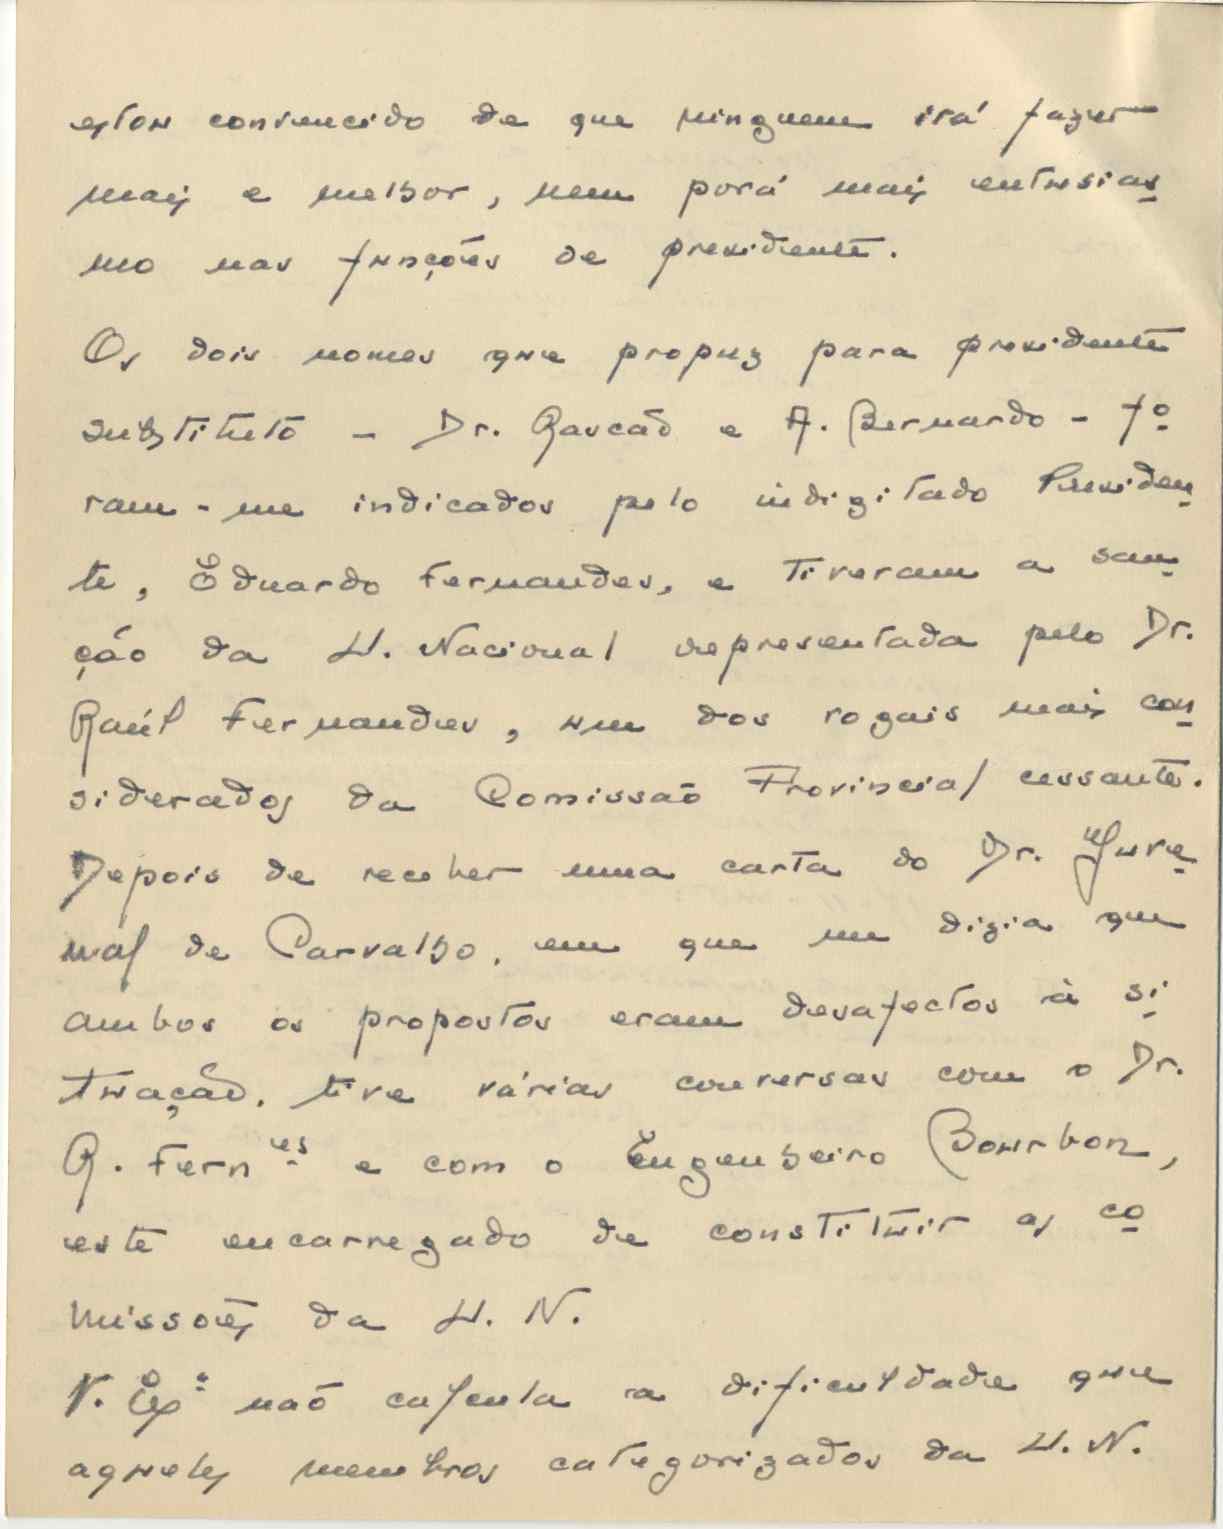 estou convencido de que ninguem irá fazer
mais e melhor, nem porá mais entusias
mo nas funções de presidente.
Os dois nomes que propuz para presidente
substituto - Dr. Gavcão e A. Bernardo - fo
ram-me indicados pelo indigitado Presiden
te, Eduardo Fernandes, e tiveram a san
ção da U. Nacional representada pelo Dr.
Raúl Fernandes, um dos vogais mais con
siderados da Comissão Provincial cessante.
Depois de receber uma carta do Dr. Juve
nal de Carvalho, em que me dizia que
ambos os propostos eram desafectos à si
tuação, tive várias conversas com o Dr.
R. Fern.es e com o Engenheiro Bourbon,
este encarregado de constituir as co
missões da U. N.
V. Exª não calcula a dificuldade que
aqueles membros categorizados da U. N.